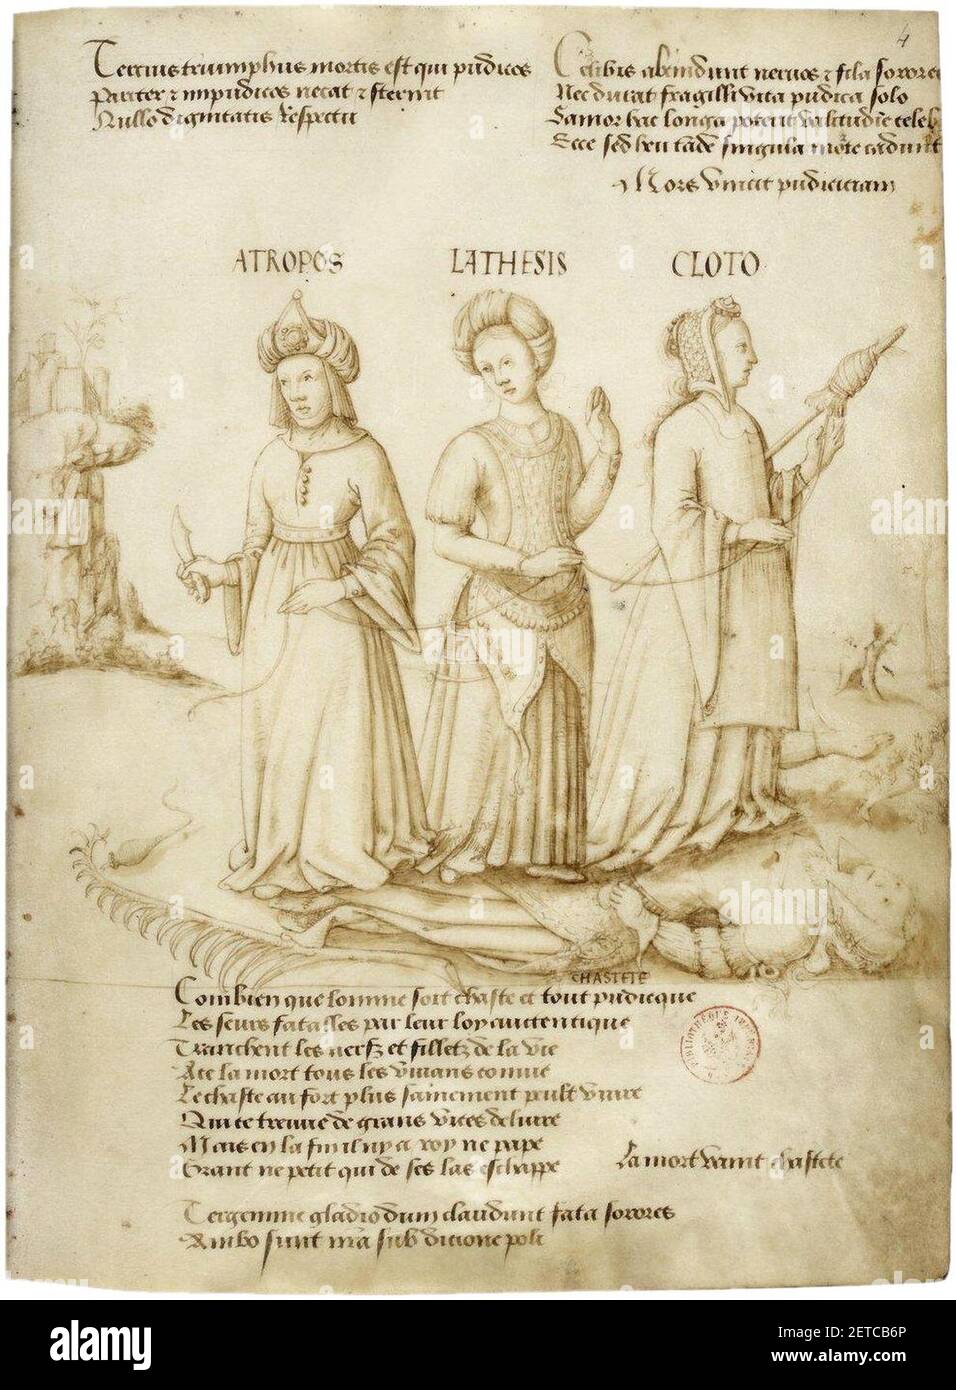 4
Tercius triumphus mortis est qui pudicos
Pariter & impudicos necat & sternit
Nullo dignitatis respectu
Celibis abrindunt neruos & fila sorores
Nec durat fragilli vita pudica solo
Samor hac longa poterit valitudine celeb
Ecce sed heu tadē singula morte cadunt
Mors vincit pudiciciam
ATROPOS LATHESIS CLOTO
CHASTETE
Combien que lomme soit chaste et tout pudicque
Les seurs fatalles par leur loy auctentique
Tranchent les nerfz et filletz de la vie
A ce la mort tous les viuans conuie
Le chaste au fort plus sainement peult viure
Qui se treuue de grans vices deliure
Mais en la fin il ny a roy ne pape
Grant ne petit qui de ses las eschappe
La mort vaint chastete
Tergemine gladio dum claudunt fata sorores
Ambo sunt mra sub dicione poli
alamy
Image ID: 2ETCB6P
www.alamy.com